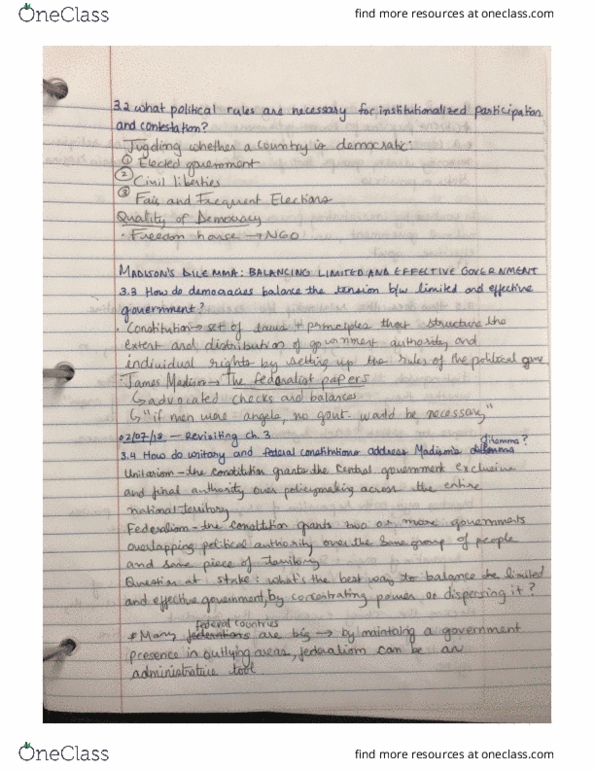 OneClass
find more resources at oneclass.com
3.2 what political rules are necessary for institutionalized participation
and contestation?
Jugding whether a country is democratic:
① Elected government
② Civil liberties
③ Fair and Frequent Elections
Quality of Democracy
· Freedom house → NGO
MADISON'S DILEMMA: BALANCING LIMITED AND EFFECTIVE GOVERNMENT
3.3 How do democracies balance the tension b/w limited and effective
government?
· Constitution → set of laws + principles that structure the
extent and distribution of government authority and
individual rights by setting up the rules of the political game
· James Madison → The federalist papers
↳ advocated checks and balances
↳ "if men were angels, no govt. would be necessary"
02/07/18 - Revisiting ch. 3
3.4 How do unitary and federal constitutions address Madison's dilemma?
Unitarism - the constitution grants the central government exclusive
and final authority over policymaking across the entire
national territory
Federalism - the constitution grants two or more governments
overlapping political authority over the same group of people
and same piece of territory
Question at stake: what's the best way to balance the limited
and effective government, by concentrating power or dispersing it?
* Many federal countries are big → by maintaing a government
presence in outlying areas, federalism can be an
administrative tool.
OneClass
find more resources at oneclass.com